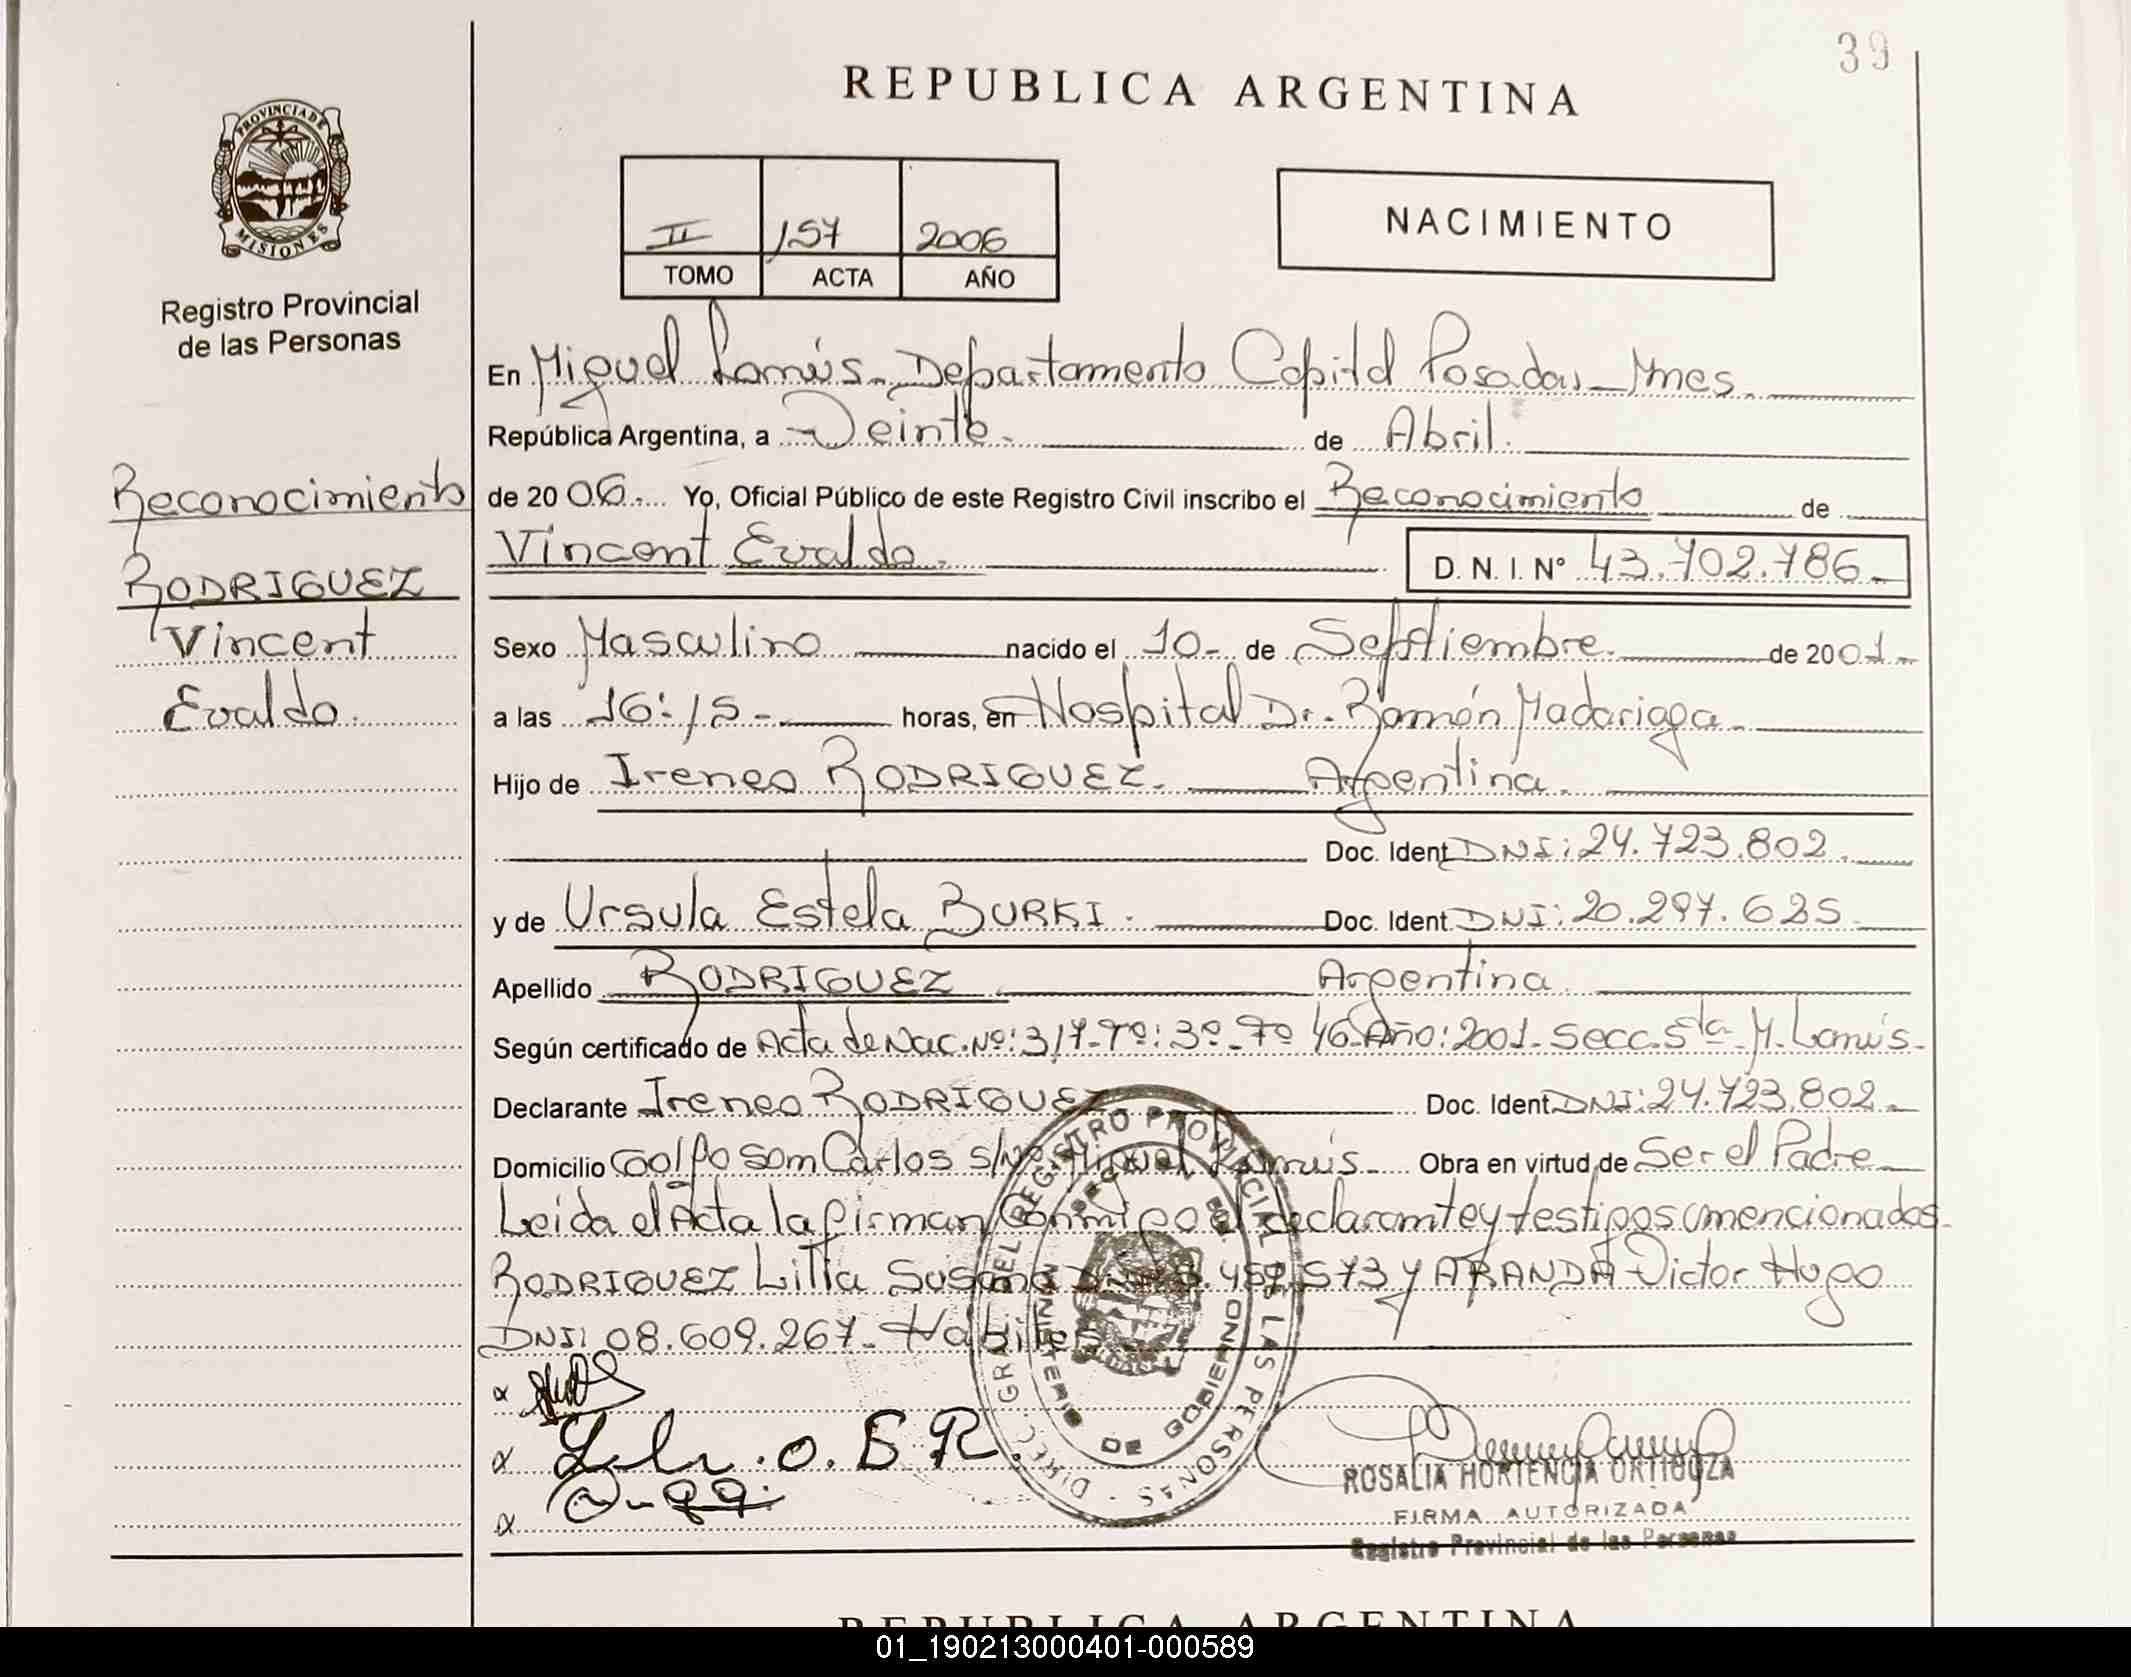 39
REPUBLICA ARGENTINA
PROVINCIA DE
MISIONES
Registro Provincial
de las Personas
II 157 2006
TOMO ACTA AÑO
NACIMIENTO
Reconocimiento
RODRIGUEZ
Vincent
Evaldo.
En Miguel Lanús. Departamento Capital Posadas Mnes.
República Argentina, a Veinte. de Abril.
de 20 06. Yo, Oficial Público de este Registro Civil inscribo el Reconocimiento de
Vincent Evaldo. D. N. I. N° 43.702.786.
Sexo Masculino nacido el 10 de Septiembre. de 2001.
a las 16:15 horas, en Hospital Dr. Ramón Madariaga
Hijo de Ireneo RODRIGUEZ. Argentina.
Doc. Ident. DNI: 24.723.802
y de Ursula Estela BURKI. Doc. Ident. DNI: 20.297.625
Apellido RODRIGUEZ Argentina
Según certificado de Acta de Nac. Nº: 317-Tº: 3º-Fº 46-Año: 2001. Secc. 5ta M. Lanús.
Declarante Ireneo RODRIGUEZ Doc. Ident. DNI: 24.723.802
Domicilio Golfo San Carlos s/Nº. Miguel Lanús. Obra en virtud de Ser el Padre
Leida el Acta la firman conmigo el declarante y testigos mencionados.
RODRIGUEZ Lilia Susana 573 y ARANDA Victor Hugo
DNI: 08.609.267. Habiles
DIREC. GRAL. DEL REGISTRO PROVINCIAL DE LAS PERSONAS
MINISTERIO DE GOBIERNO
ROSALIA HORTENCIA ORTIGOZA
FIRMA AUTORIZADA
Registro Provincial de las Personas
REPUBLICA ARGENTINA
01_190213000401-000589